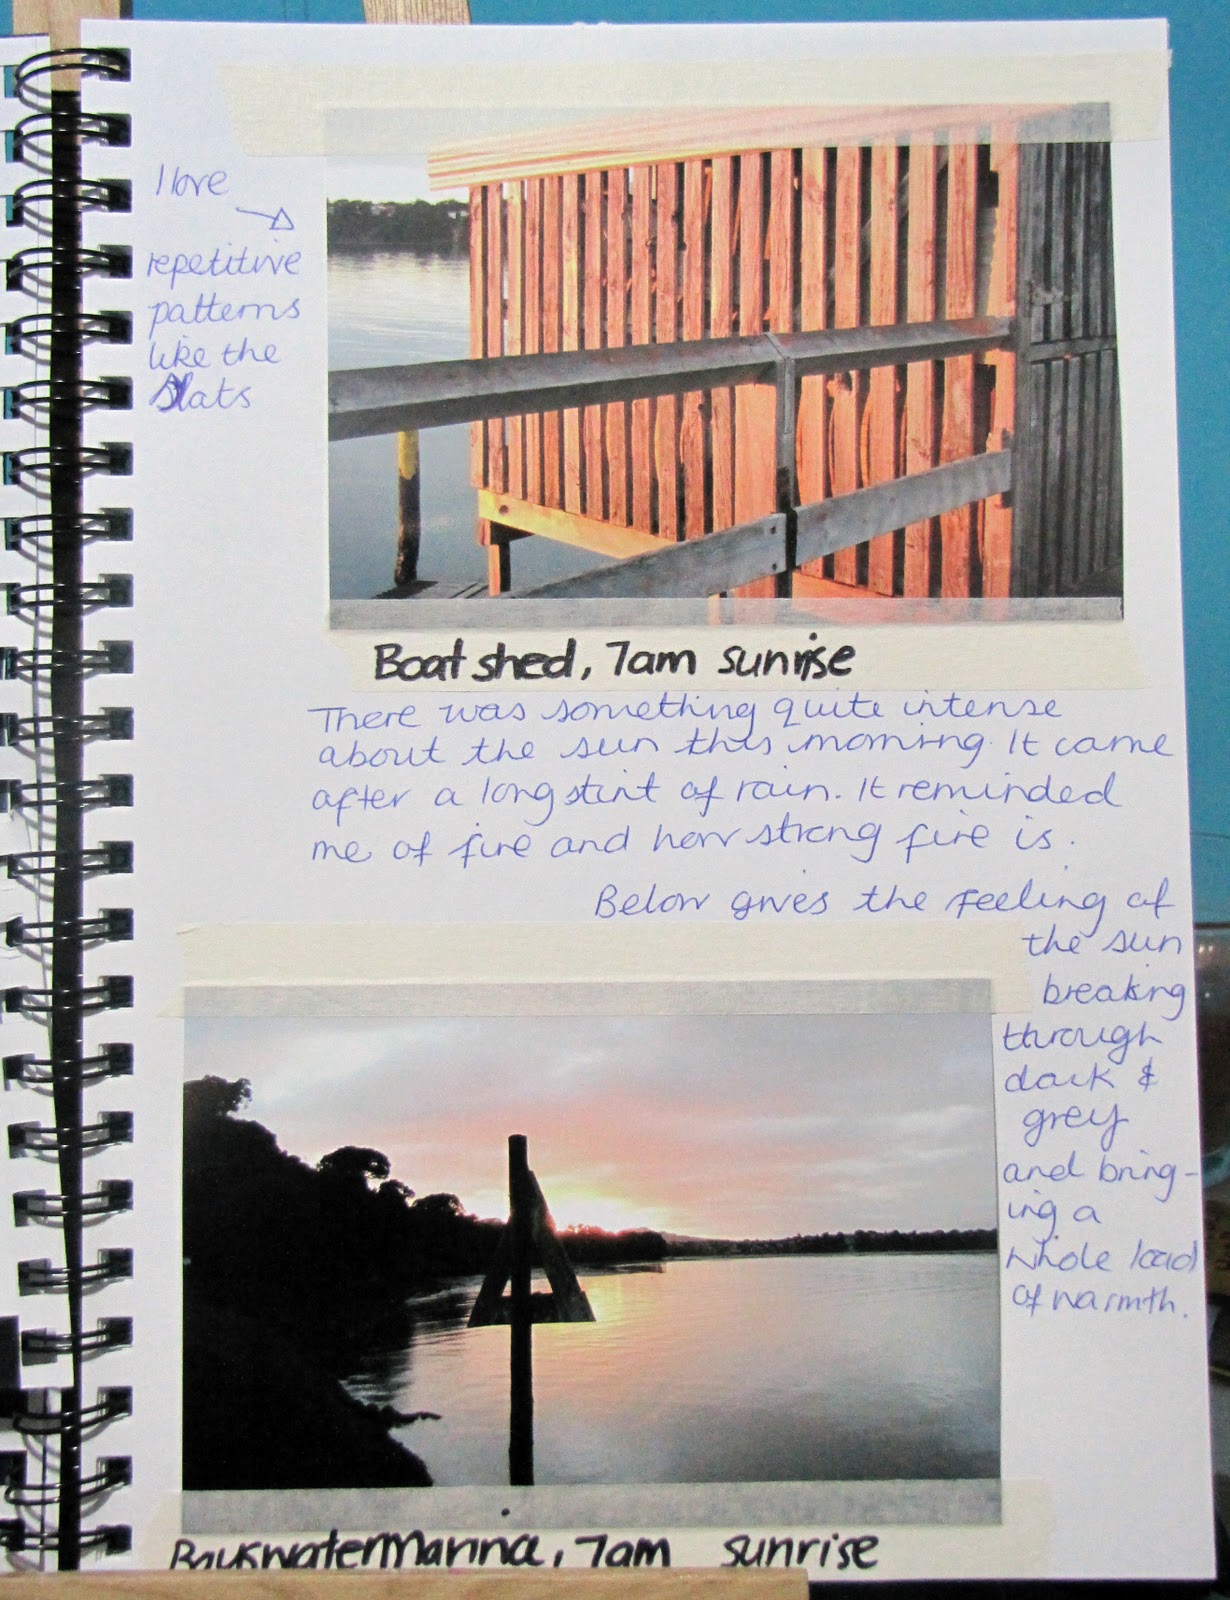 I love
repetitive
patterns
like the
Slats
Boat shed, 7am sunrise
There was something quite intense
about the sun this morning. It came
after a long stint of rain. It reminded
me of fire and how strong fire is.
Below gives the feeling of
the sun
breaking
through
dark &
grey
and bring-
ing a
whole load
of warmth.
Bayswater Marina, 7am sunrise